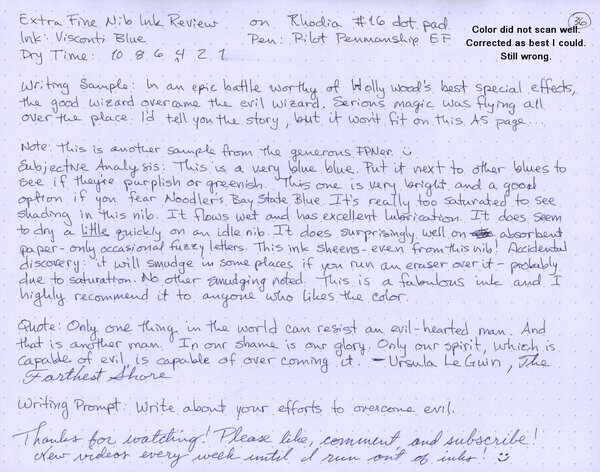 Extra Fine Nib Ink Review on Rhodia #16 dot pad 36
Ink: Visconti Blue Pen: Pilot Penmanship EF
Dry Time: 10 8 6 4 2 1
Color did not scan well.
Corrected as best I could.
Still wrong.
Writing Sample: In an epic battle worthy of Hollywood's best special effects,
the good wizard overcame the evil wizard. Serious magic was flying all
over the place. I'd tell you the story, but it won't fit on this A5 page...
Note: this is another sample from the generous FPNer. ☺
Subjective Analysis: This is a very blue blue. Put it next to other blues to
see if they're purplish or greenish. This one is very bright and a good
option if you fear Noodler's Bay State Blue. It's really too saturated to see
shading in this nib. It flows wet and has excellent lubrication. It does seem
to dry a little quickly on an idle nib. It does surprisingly well on absorbent
paper - only occasional fuzzy letters. This ink sheens - even from this nib! Accidental
discovery: it will smudge in some places if you run an eraser over it - probably
due to saturation. No other smudging noted. This is a fabulous ink and I
highly recommend it to anyone who likes the color.
Quote: Only one thing in the world can resist an evil-hearted man. And
that is another man. In our shame is our glory. Only our spirit, which is
capable of evil, is capable of over coming it. - Ursula LeGuin, The
Farthest Shore
Writing Prompt: Write about your efforts to overcome evil.
Thanks for watching! Please like, comment, and subscribe!
New videos every week until I run out of inks! ☺